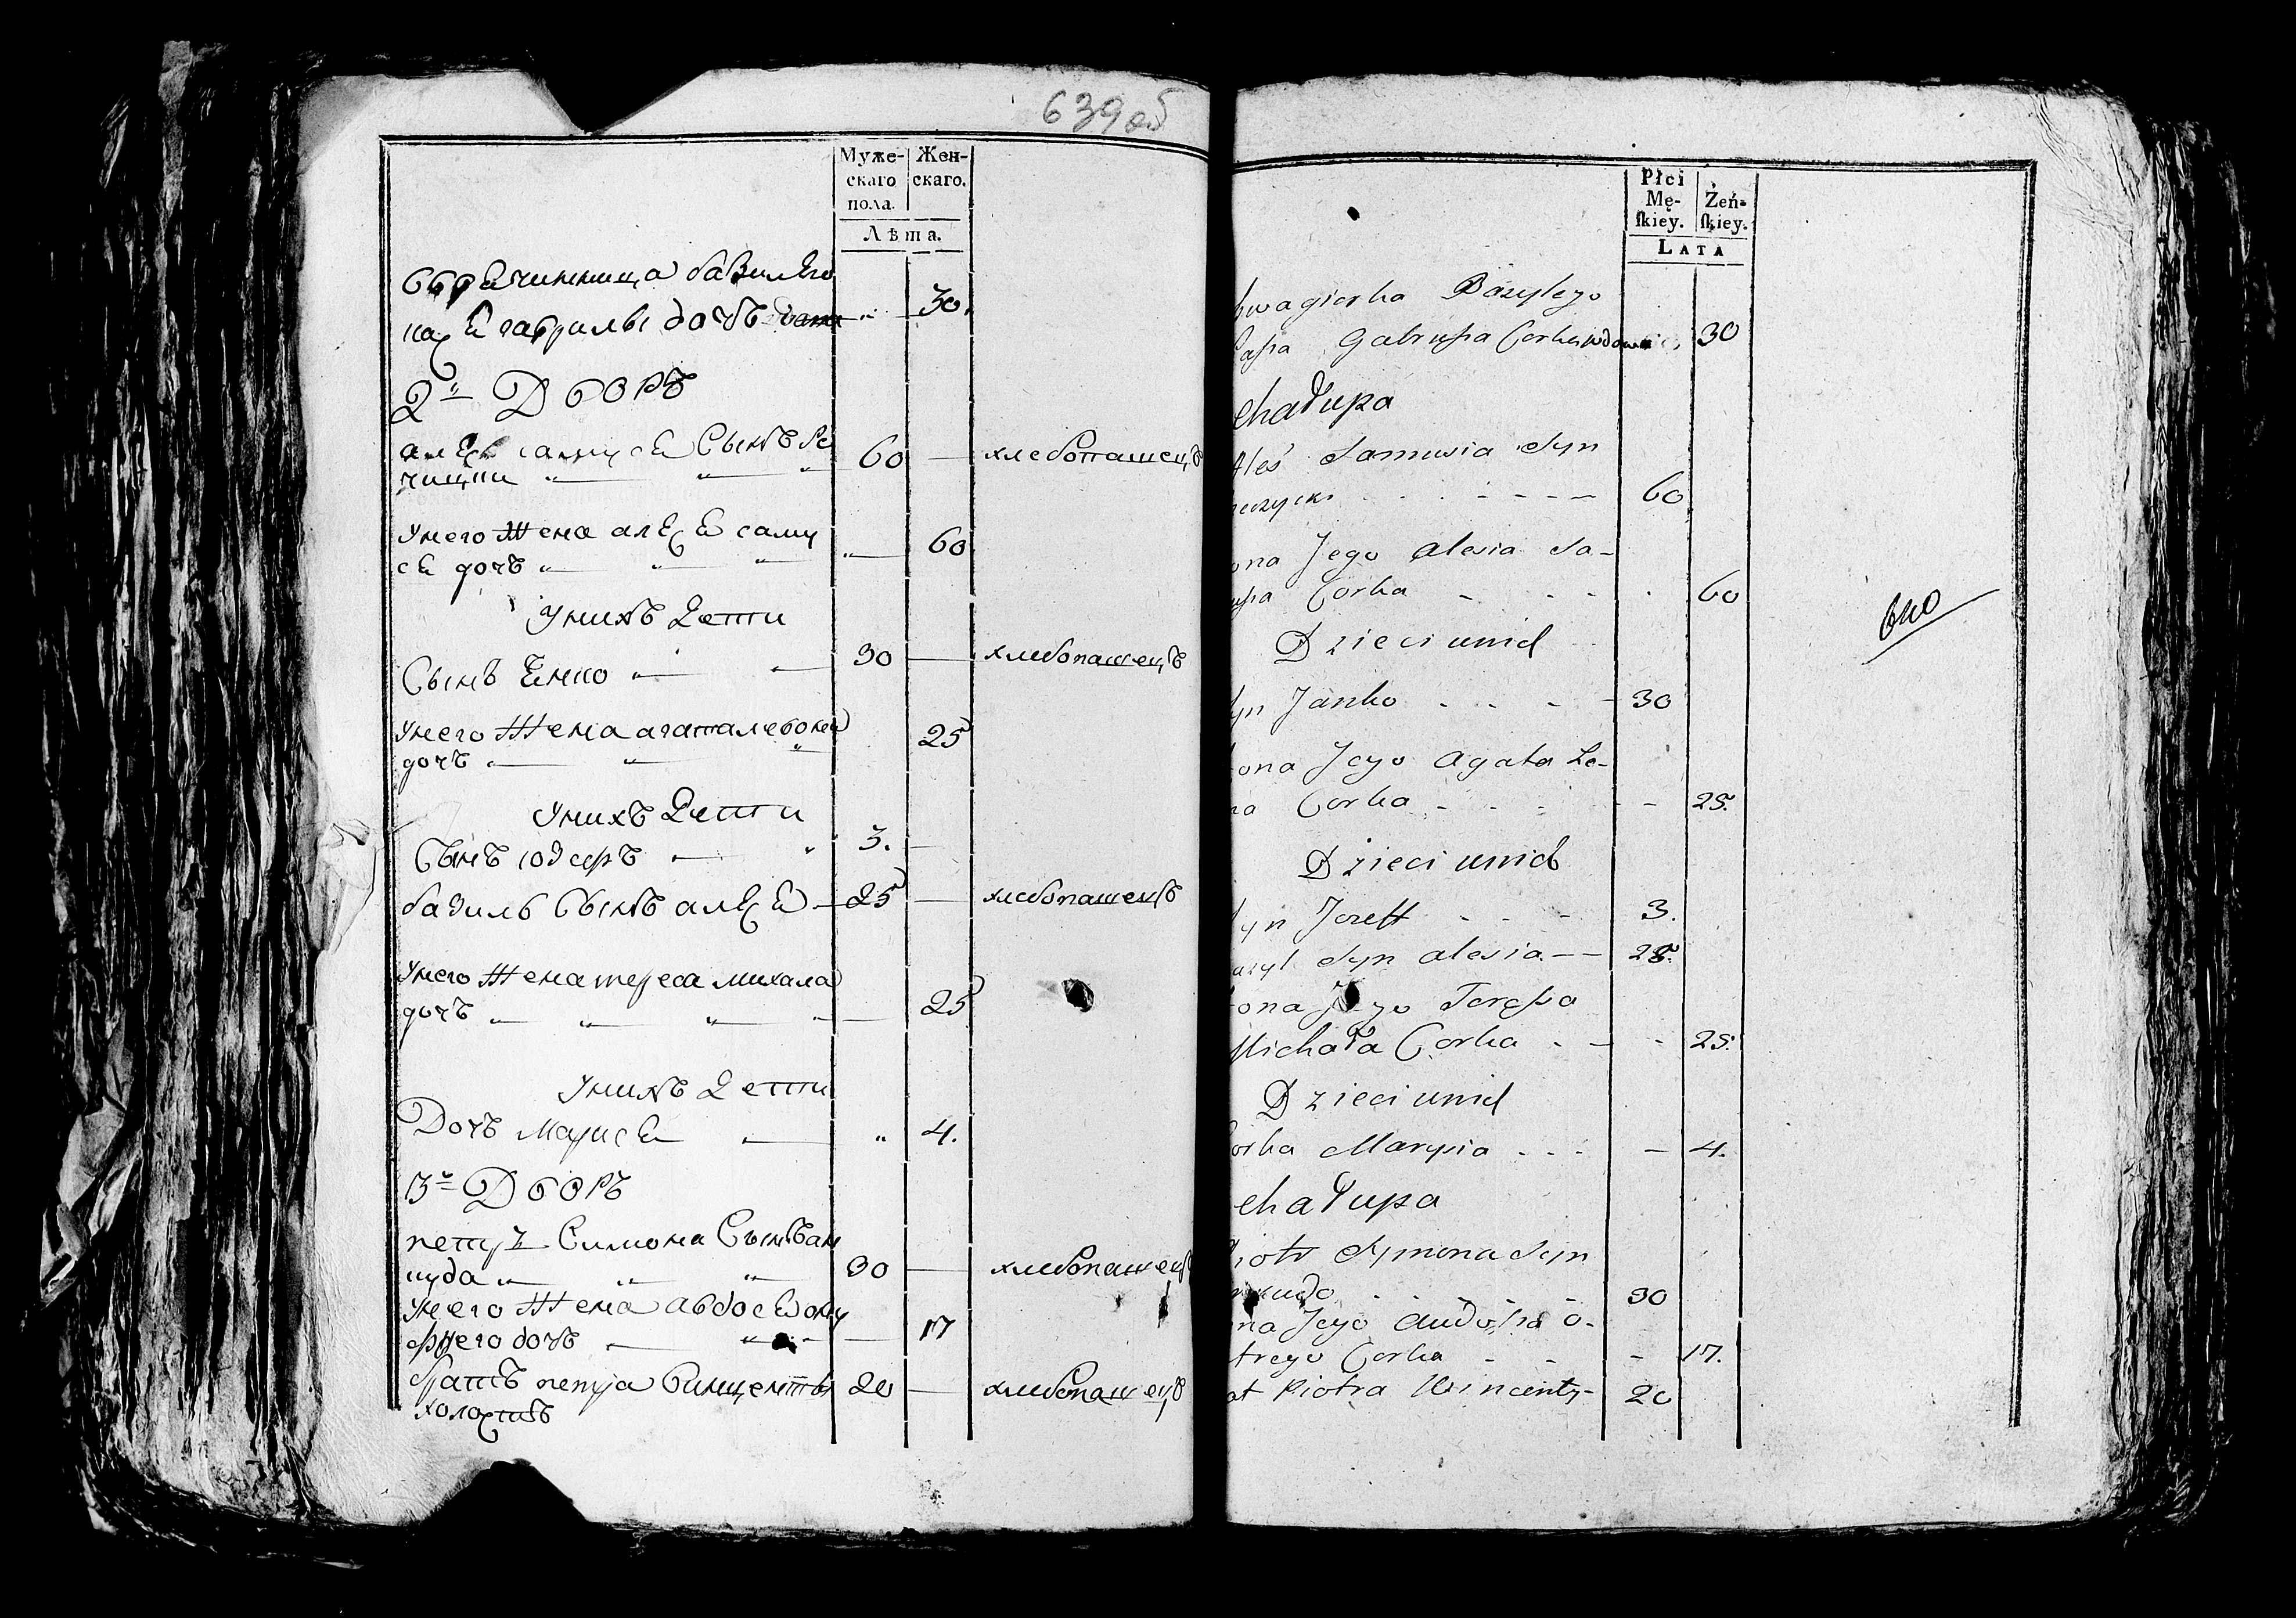 639 об
Муже-
скаго
пола.
Жен-
скаго.
Лѣта.
базилего
гаврилы дочь " 30.
2й Дворъ
алеся самуся Сынъ Ре
чицки " " " 60 — хлебопашецъ
Унего Жена алеся саму
ся дочь " " " " 60
Унихъ Дети
Сынъ Янко " — 30 — хлебопашецъ
Унего Жена агата леона
дочь " " " 25
Унихъ Дети
Сынъ юзефъ " " 3. —
базиль Сынъ алеся — 25 — хлебопашецъ
Унего Жена тереса михала
дочь " " " " — 25
Унихъ Дети
Дочь Марися — " 4.
3й Дворъ
петръ Симона Сынъ Ван
куда " " " 30 — хлебопашецъ
Унего Жена авдося ону
фрего дочь — " — 17
братъ петра Винценты 20 — хлебопашецъ
холостъ
Płci
Mę-
skiey.
Żeń-
skiey.
LATA
wagierka Bazylego
Gabrysia Corka wdowa 30
chałupa
Aleś Samusia Syn
eczycki - - - - - 60
ona Jego Alesia Sa-
usia Corka - - - 60
Dzieci unich
yn Janko - - - 30
ona Jego Agata Le-
na Corka - - - 25.
Dzieci unich
yn Jozeff - - - 3.
azyl Syn Alesia - - 25.
ona Jego Teresa
Michała Corka - - - 25.
Dzieci unich
orka Marysia - - - 4.
chałupa
Piotr Symona Syn
nkuda - - - 30
na Jego Audosia O-
frego Corka - - - 17.
at Piotra Wincenty- 20
640